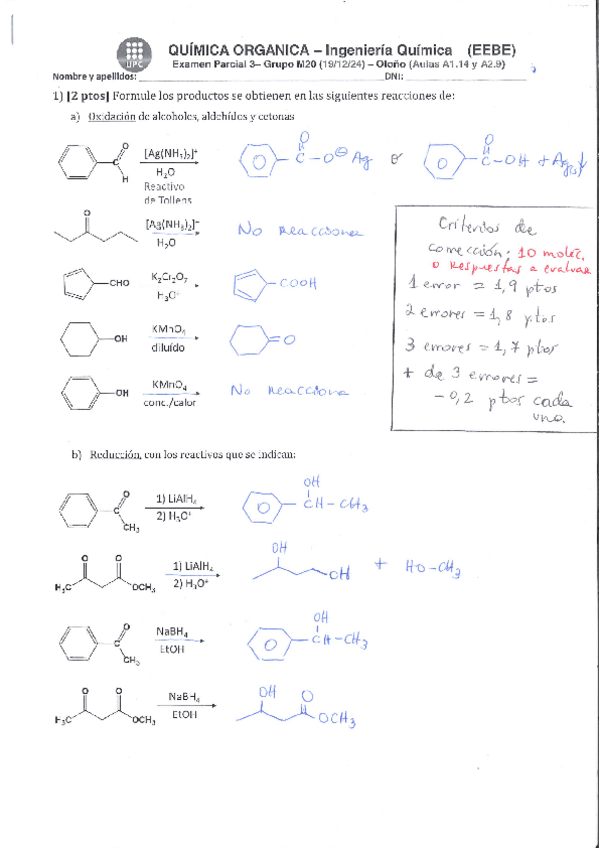 UPC
QUÍMICA ORGANICA – Ingeniería Química (EEBE)
Examen Parcial 3– Grupo M20 (19/12/24) – Oloño (Aulas A1.14 y A2.9)
Nombre y apellidos: DNI:
1) [2 ptos] Formule los productos se obtienen en las siguientes reacciones de:
a) Oxidación de alcoholes, aldehídos y cetonas
O C H [Ag(NH₃)₂]⁺ H₂O Reactivo de Tollens
O C – O⊖ Ag o O C – OH + Ag(s)↓
O [Ag(NH₃)₂]⁺ H₂O No Reacciona
CHO K₂Cr₂O₇ H₃O⁺ COOH
OH KMnO₄ diluído =O
OH KMnO₄ conc./calor No Reacciona
Criterios de
corrección: 10 moléc.
o Respuestas a evaluar
1 error = 1,9 ptos
2 errores = 1,8 ptos
3 errores = 1,7 ptos
+ de 3 errores =
-0,2 ptos cada
uno.
b) Reducción, con los reactivos que se indican:
O C CH₃ 1) LiAlH₄ 2) H₃O⁺ OH CH – CH₃
O O H₃C OCH₃ 1) LiAlH₄ 2) H₃O⁺ OH OH + HO–CH₃
O C CH₃ NaBH₄ EtOH OH CH–CH₃
O O H₃C OCH₃ NaBH₄ EtOH OH O OCH₃